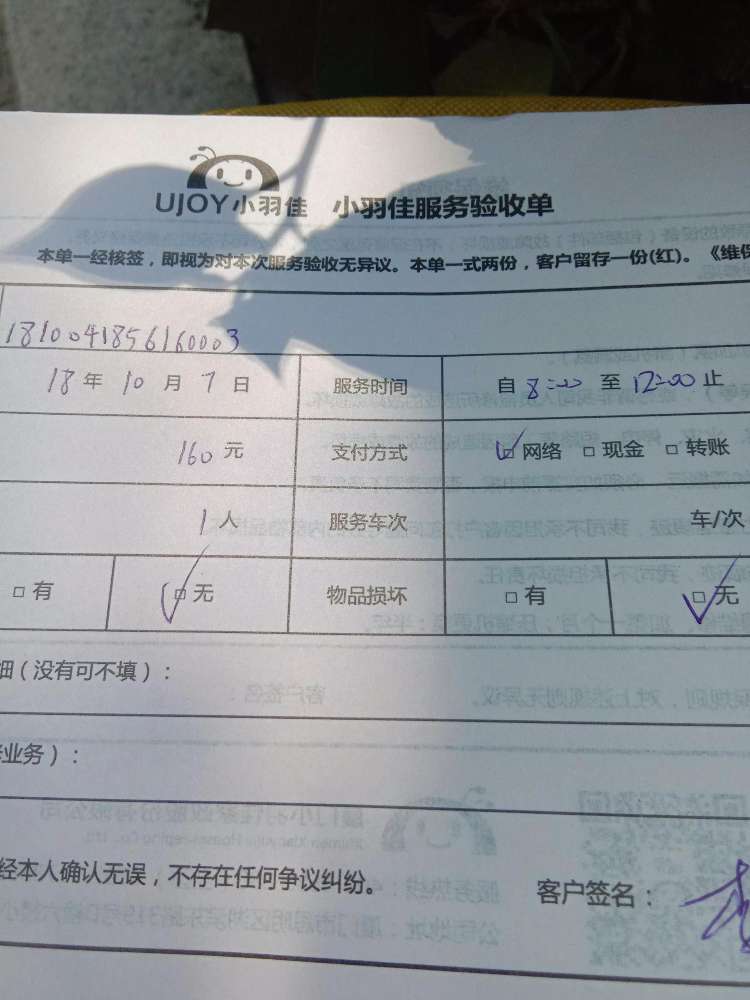 UJOY小羽佳 小羽佳服务验收单
本单一经核签，即视为对本次服务验收无异议。本单一式两份，客户留存一份(红)。《维保
1810041856160003
18年10月7日 服务时间 自8:00至12:00止
160元 支付方式 ☑网络 □现金 □转账
1人 服务车次 车/次
□有 ☑无 物品损坏 □有 ☑无
细（没有可不填）：
业务）：
经本人确认无误，不存在任何争议纠纷。 客户签名：